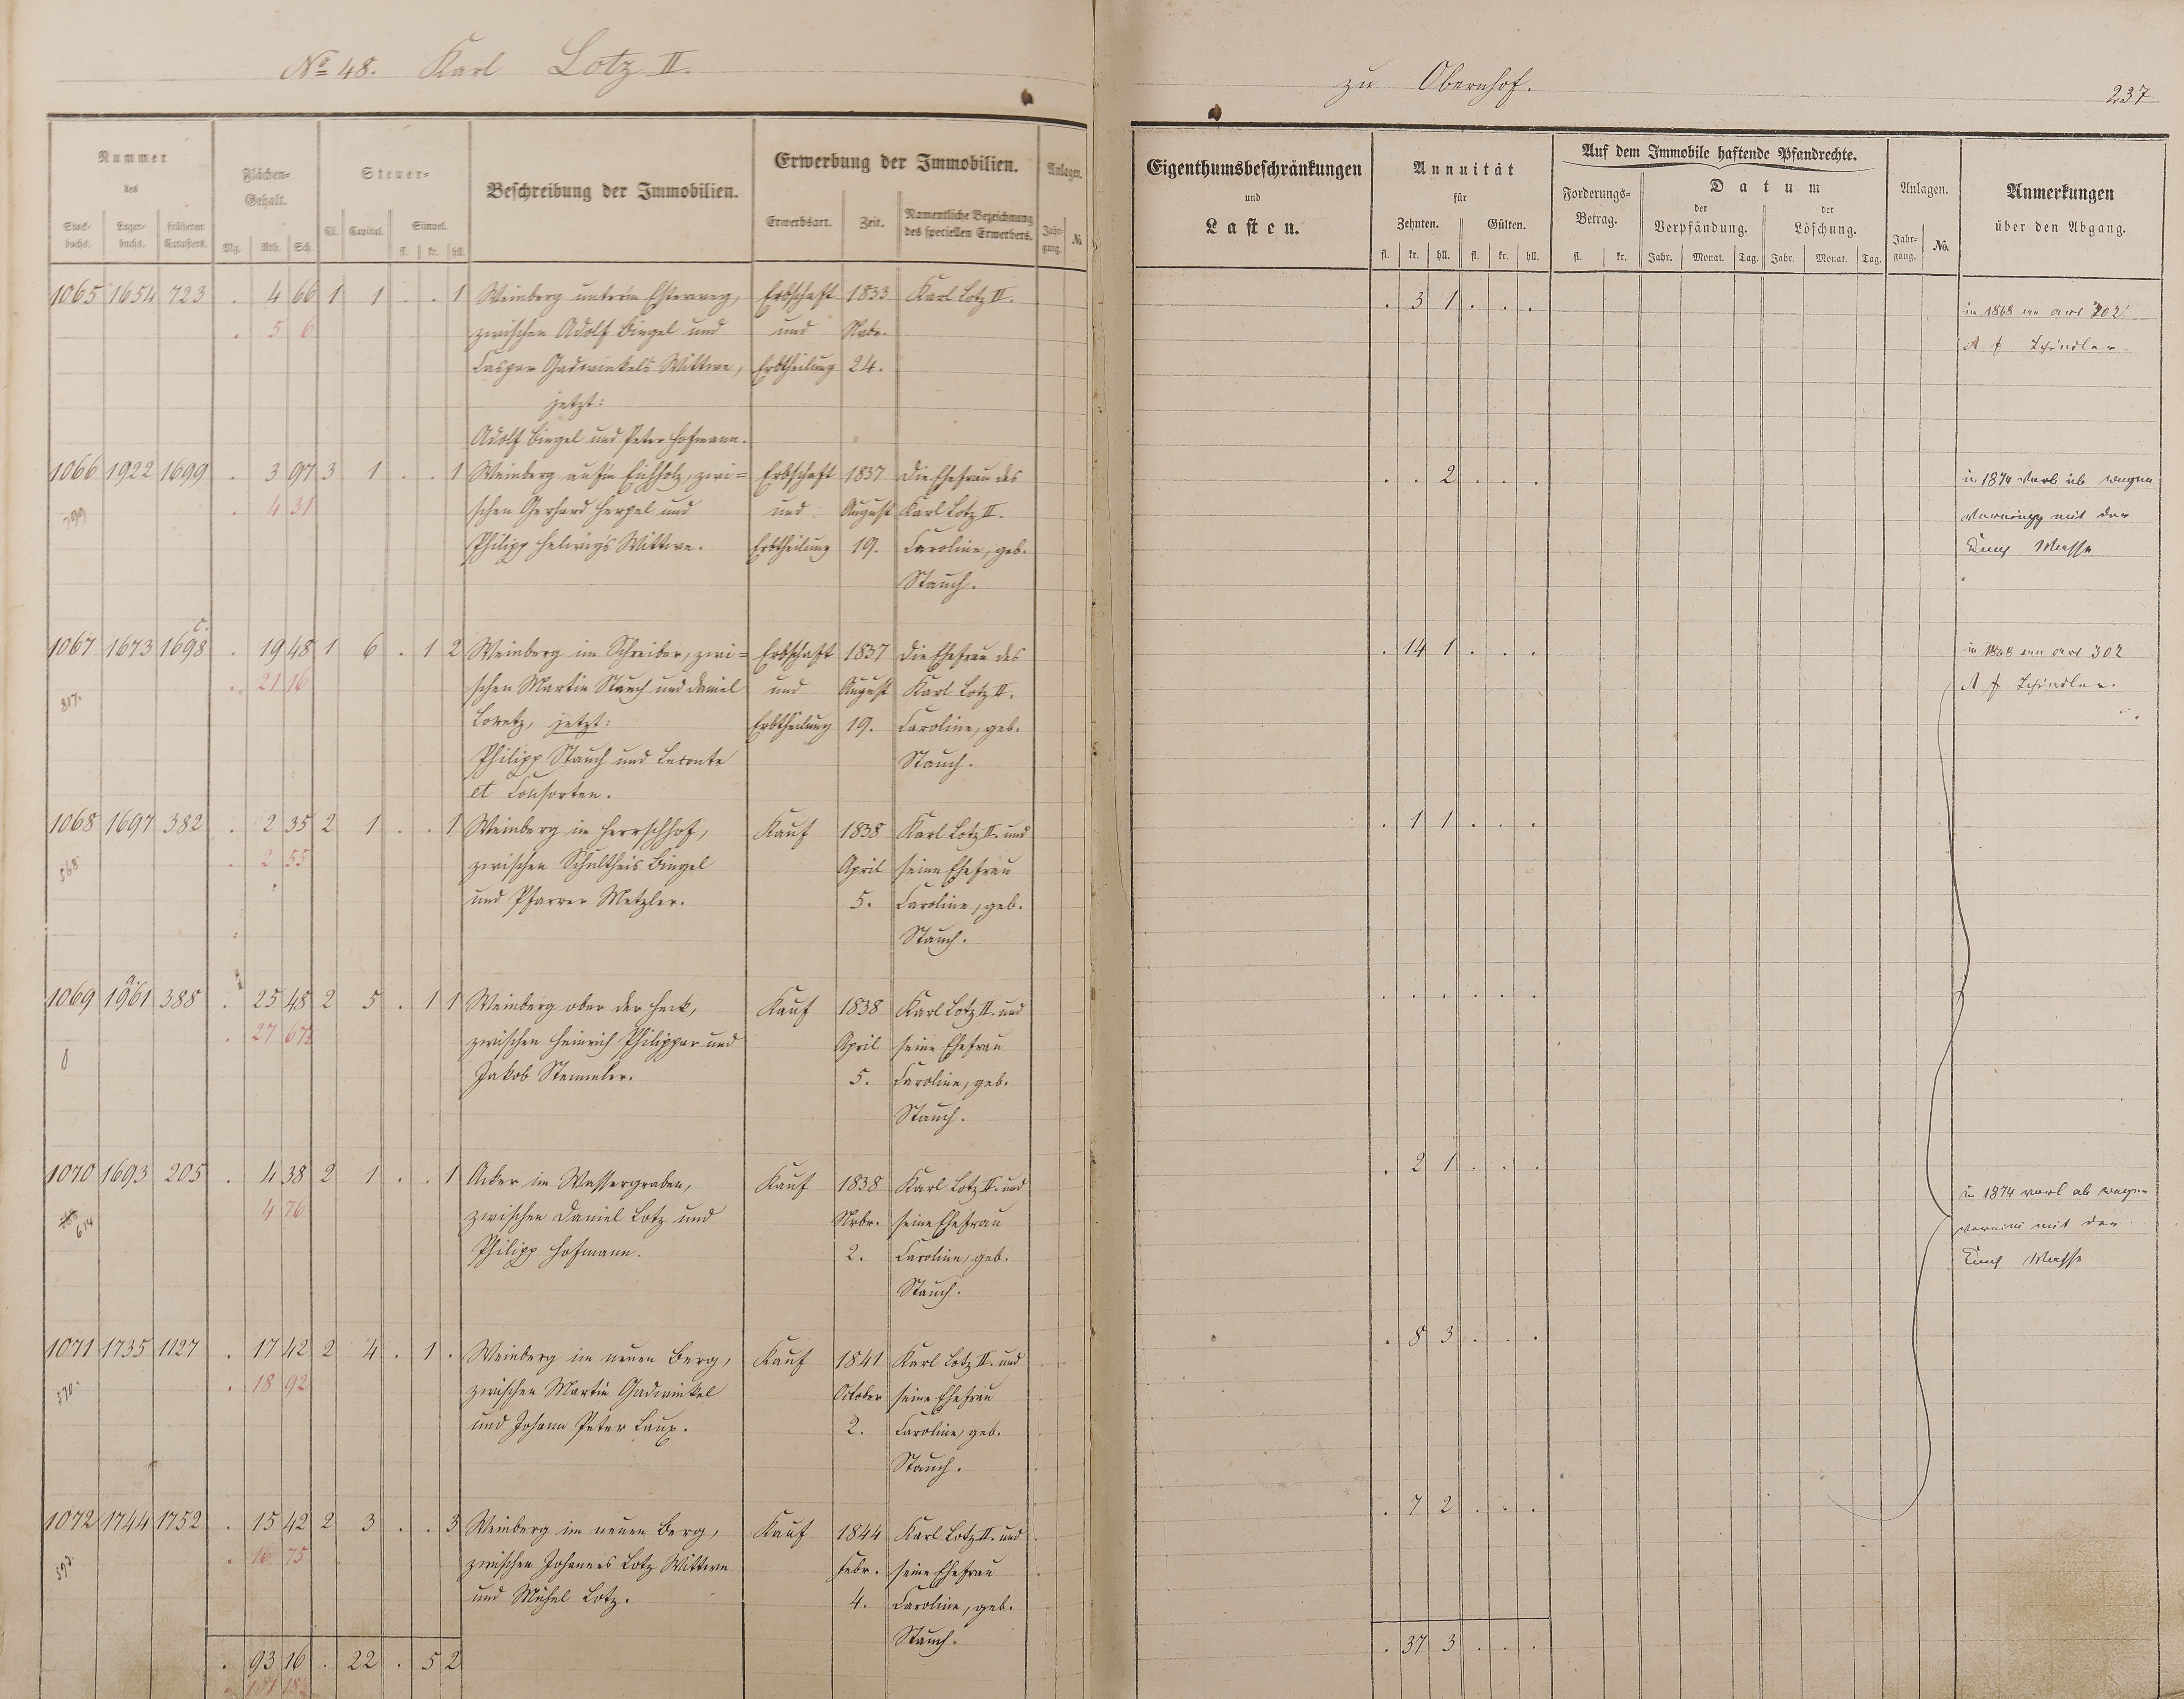 No 48. Karl Lotz II.
zu Obernhof.
237
Nummer
des
Stock-
buchs.
Lager-
buchs.
früheren
Catasters.
Flächen-
Gehalt.
Mg. Rth. Sch.
Steuer-
Cl. Capital. Simpel.
fl. kr. hll.
Beschreibung der Immobilien.
Erwerbung der Immobilien.
Erwerbsart. Zeit. Namentliche Bezeichnung
des speciellen Erwerbers.
Anlagen.
Jahr-
gang. No.
Eigenthumsbeschränkungen
und
Lasten.
Annuität
für
Zehnten. Gülten.
fl. kr. hll. fl. kr. hll.
Auf dem Immobile haftende Pfandrechte.
Forderungs-
Betrag.
fl. kr.
Datum
der
Verpfändung.
der
Löschung.
Jahr. Monat. Tag. Jahr. Monat. Tag.
Anlagen.
Jahr-
gang. No.
Anmerkungen
über den Abgang.
1065 1654 723 . 4 66 1 1 . . 1 Weinberg unterm zwischen Erbschaft 1833 Karl Lotz II. . 3 1 . . . in 1868 an art 302
. 5 6 zwischen Adolf Bingel und und Nvbr. A f Schindler
Caspar Gadwinkels Wittwe, Erbtheilung 24.
jetzt:
Adolf Bingel und Peter Hofmann.
1066 1922 1699 . 3 97 3 1 . . 1 Weinberg auf'm Eichholz, zwi= Erbschaft 1837 Die Ehefrau des . . 2 . . . in 1874 wegen
. 4 31 schen Gerhard Hergel und und August Karl Lotz II. mit der
Philipp Helwig's Wittwe. Erbtheilung 19. Caroline, geb. Masse
Stauch.
c.
1067 1673 1698 . 19 48 1 6 . 1 2 Weinberg im Schreiber, zwi= Erbschaft 1837 Die Ehefrau des . 14 1 . . . in 1868 an art 302
817. . 21 16 schen Martin Stauch und Daniel und August Karl Lotz II. A f Schindler.
Loretz, jetzt: Erbtheilung 19. Caroline, geb.
Philipp Stauch und Leconte Stauch.
et Consorten.
1068 1697 382 . 2 35 2 1 . . 1 Weinberg im Herrschhof, Kauf 1838 Karl Lotz II. und . 1 1 . . .
568 . 2 55 zwischen Schultheis Bingel April seine Ehefrau
und Pfarrer Metzler. 5. Caroline, geb.
Stauch.
a.
1069 1961 388 . 25 48 2 5 . 1 1 Weinberg ober der Heck, Kauf 1838 Karl Lotz II. und . . . . . .
. 27 67 zwischen Heinrich Philippar und April seine Ehefrau
Jakob Stemmler. 5. Caroline, geb.
Stauch.
1070 1693 205 . 4 38 2 1 . . 1 Acker im Wassergraben, Kauf 1838 Karl Lotz II. und . 2 1 . . . in 1874 ab wegen
614 4 76 zwischen Daniel Lotz und Nvbr. seine Ehefrau mit der
Philipp Hofmann. 2. Caroline, geb. Masse
Stauch.
1071 1735 1127 . 17 42 2 4 . 1 . Weinberg im neuen Berg, Kauf 1841 Karl Lotz II. und . 8 3 . . .
570. . 18 92 zwischen Martin Gadwinkel October seine Ehefrau
und Johann Peter Laux. 2. Caroline, geb.
Stauch.
1072 1744 1752 . 15 42 2 3 . . 3 Weinberg im neuen Berg, Kauf 1844 Karl Lotz II. und . 7 2 . . .
. 16 75 zwischen Johannes Lotz Wittwe Febr. seine Ehefrau
und Michel Lotz. 4. Caroline, geb.
Stauch.
. 93 16 . 22 . 5 2 . 37 3 . . .
. 101 18